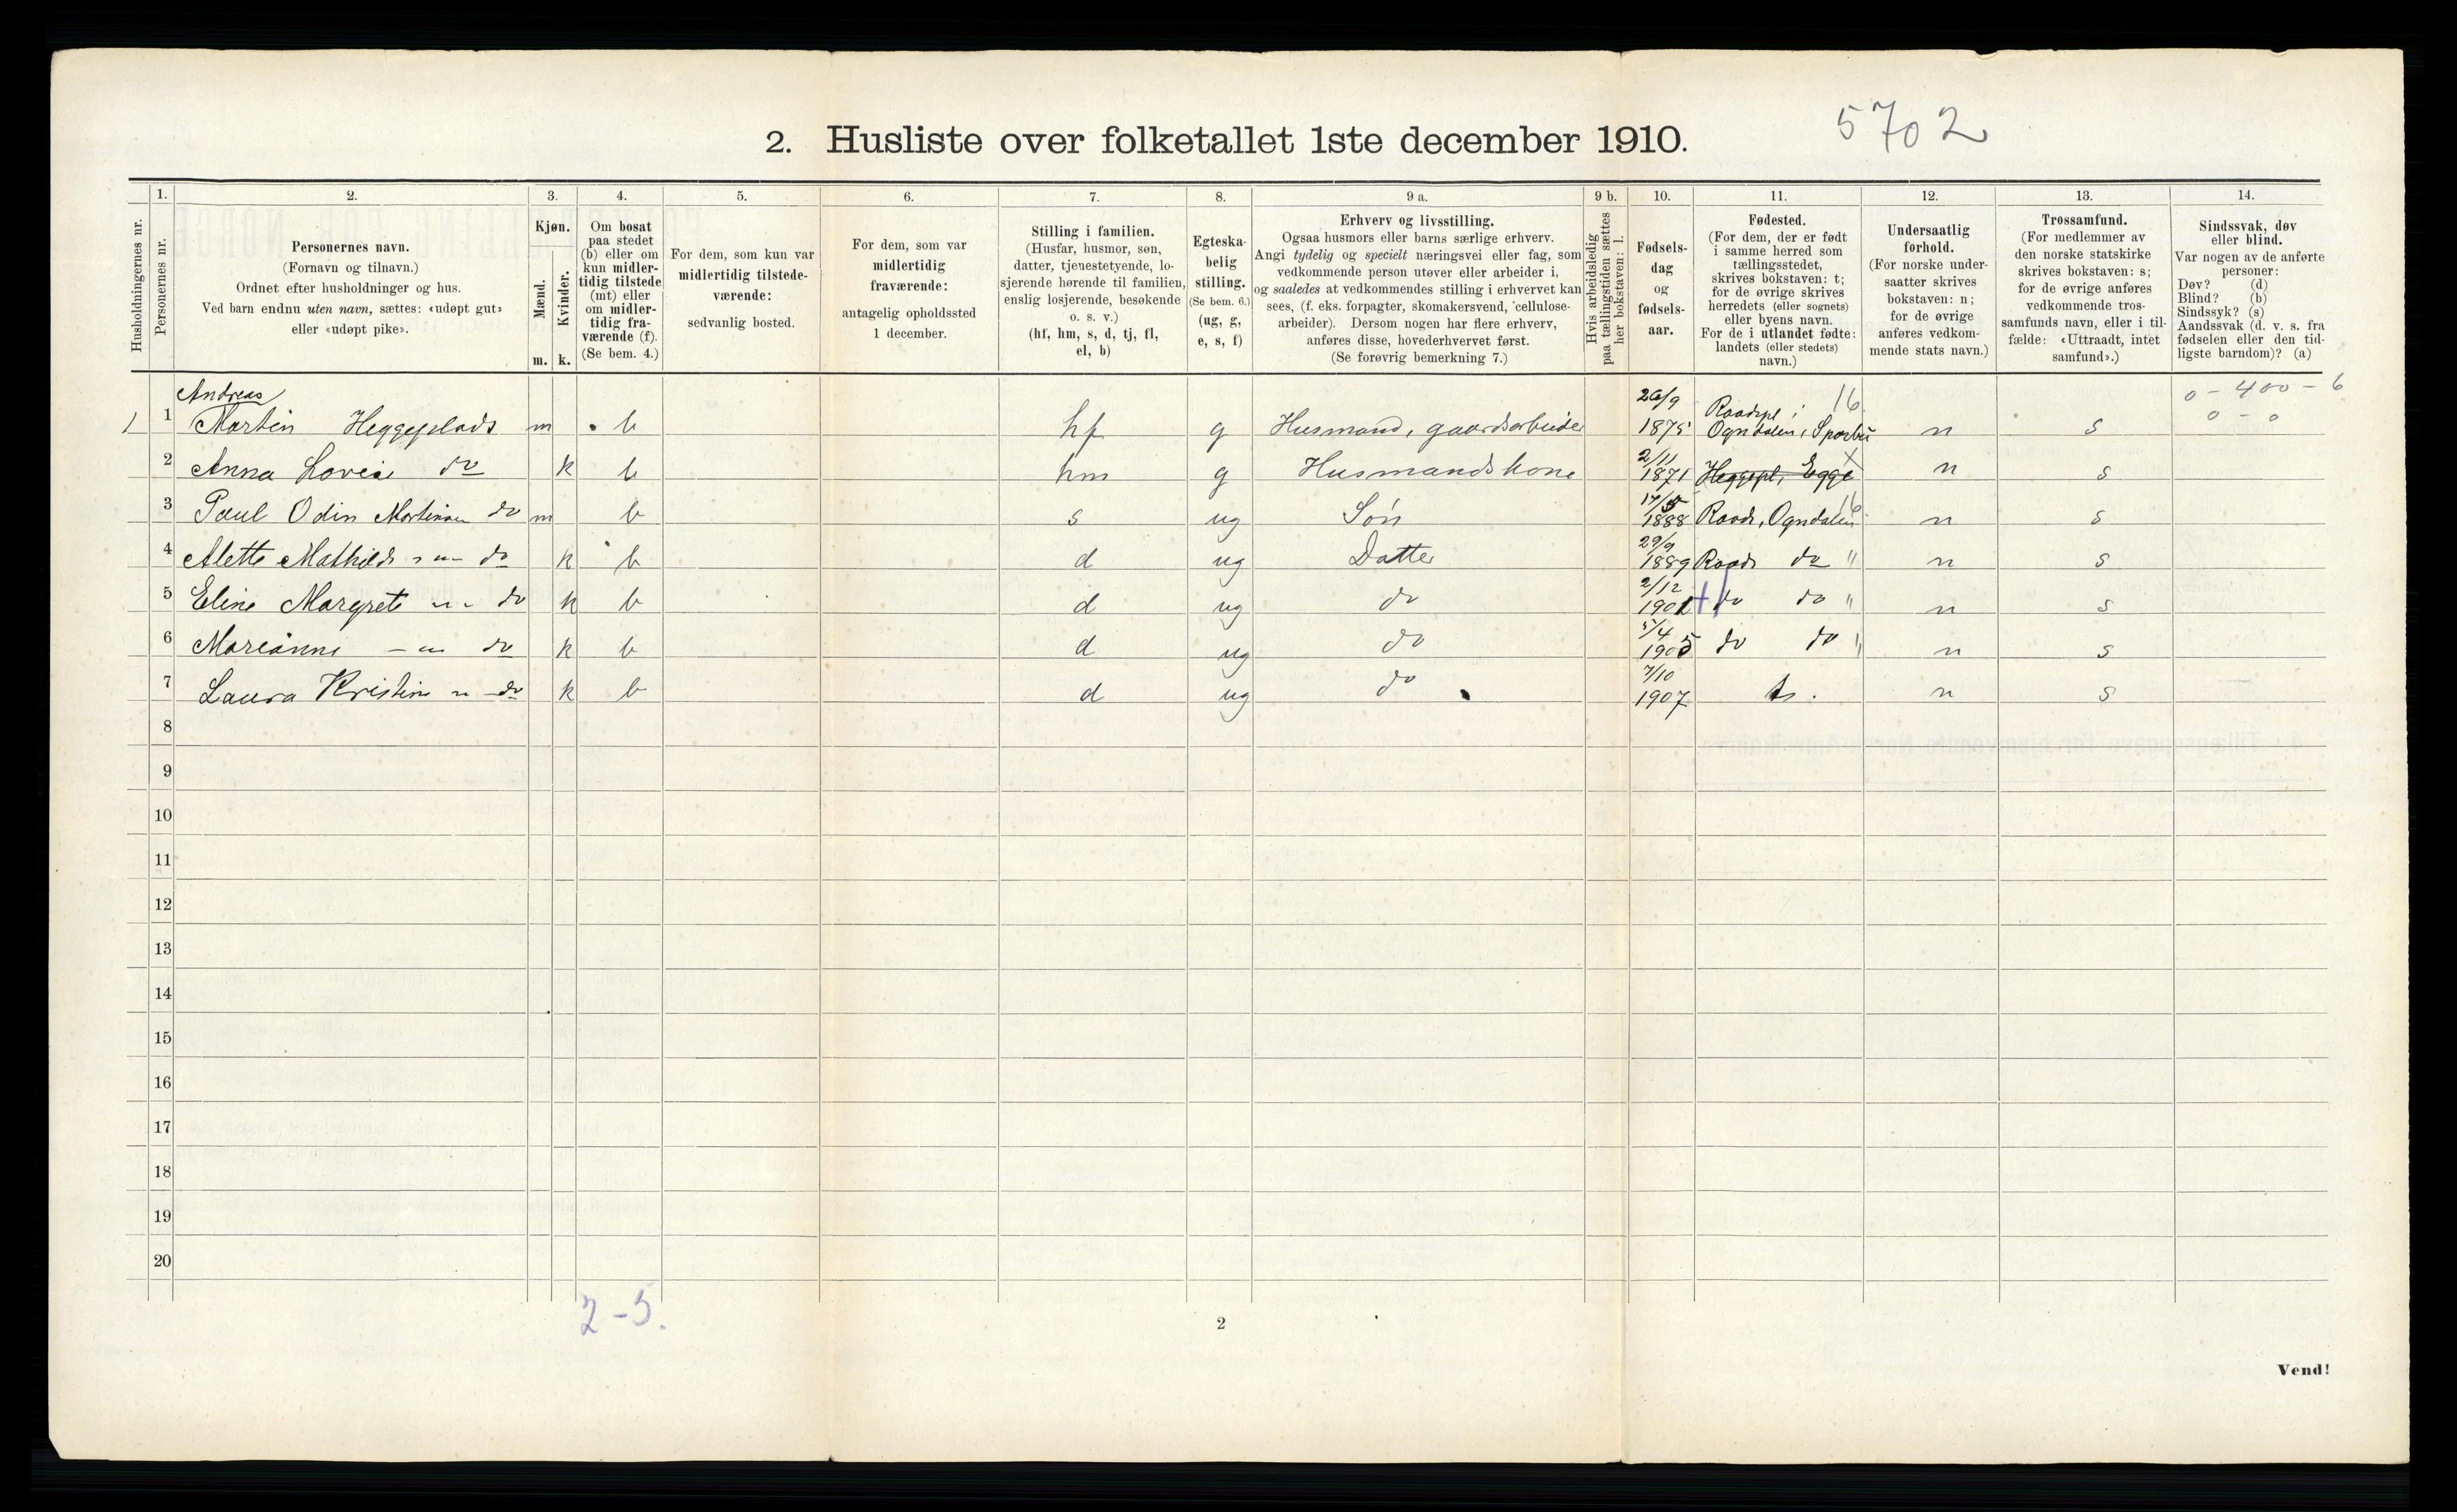 5702
2. Husliste over folketallet 1ste december 1910.
Husholdningernes nr.
1.
Personernes nr.
2.
Personernes navn.
(Fornavn og tilnavn.)
Ordnet efter husholdninger og hus.
Ved barn endnu uten navn, sættes: «udøpt gut»
eller «udøpt pike».
3.
Kjøn.
Mænd.
Kvinder.
m. k.
4.
Om bosat
paa stedet
(b) eller om
kun midler-
tidig tilstede
(mt) eller
om midler-
tidig fra-
værende (f).
(Se bem. 4.)
5.
For dem, som kun var
midlertidig tilstede-
værende:
sedvanlig bosted.
6.
For dem, som var
midlertidig
fraværende:
antagelig opholdssted
1 december.
7.
Stilling i familien.
(Husfar, husmor, søn,
datter, tjenestetyende, lo-
sjerende hørende til familien,
enslig losjerende, besøkende
o. s. v.)
(hf, hm, s, d, tj, fl,
el, b)
8.
Egteska-
belig
stilling.
(Se bem. 6.)
(ug, g,
e, s, f)
9 a.
Erhverv og livsstilling.
Ogsaa husmors eller barns særlige erhverv.
Angi tydelig og specielt næringsvei eller fag, som
vedkommende person utøver eller arbeider i,
og saaledes at vedkommendes stilling i erhvervet kan
sees, (f. eks. forpagter, skomakersvend, cellulose-
arbeider). Dersom nogen har flere erhverv,
anføres disse, hovederhvervet først.
(Se forøvrig bemerkning 7.)
9 b.
Hvis arbeidsledig
paa tællingstiden sættes
her bokstaven: l.
10.
Fødsels-
dag
og
fødsels-
aar.
11.
Fødested.
(For dem, der er født
i samme herred som
tællingsstedet,
skrives bokstaven: t;
for de øvrige skrives
herredets (eller sognets)
eller byens navn.
For de i utlandet fødte:
landets (eller stedets)
navn.)
12.
Undersaatlig
forhold.
(For norske under-
saatter skrives
bokstaven: n;
for de øvrige
anføres vedkom-
mende stats navn.)
13.
Trossamfund.
(For medlemmer av
den norske statskirke
skrives bokstaven: s;
for de øvrige anføres
vedkommende tros-
samfunds navn, eller i til-
fælde: «Uttraadt, intet
samfund».)
14.
Sindssvak, døv
eller blind.
Var nogen av de anførte
personer:
Døv? (d)
Blind? (b)
Sindssyk? (s)
Aandssvak (d. v. s. fra
fødselen eller den tid-
ligste barndom)? (a)
Andreas 26/9 16 0 - 400 - 6
1 1 Martin Heggeplads m b hf g Husmand, gaardsarbeider 1875 Raadspl i Ogndalen, Sparbu n s 0 - 0
2/11
2 Anna Lovise do k b hm g Husmandskone 1871 Heggepl, Egge X n s
17/5 16
3 Paul Odin Martinsen do m b s ug Søn 1888 Raads, Ogndalen n s
29/9
4 Alette Mathilde do k b d ug Datter 1889 Raads do " n s
2/12
5 Eline Margrete do k b d ug do 1901 do do " n s
5/4
6 Marianne do k b d ug do 1905 do do " n s
7/10
7 Laura Kristine do k b d ug do 1907 ts. n s
8
9
10
11
12
13
14
15
16
17
18
19
20
2-5.
2
Vend!